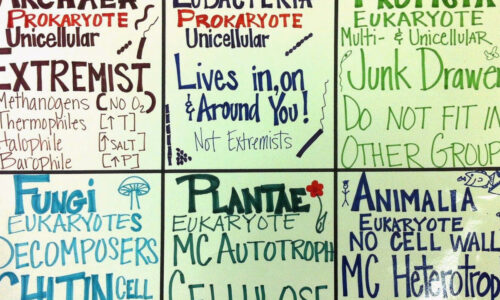 ARCHAEA
PROKARYOTE
Unicellular
EXTREMIST
Methanogens (NO O₂)
Thermophiles [↑T]
Halophile [↑SALT]
Barophile [↑P]
EUBACTERIA
PROKARYOTE
Unicellular
Lives in, on
& Around You!
Not Extremists
PROTISTA
EUKARYOTE
Multi- & Unicellular
Junk Drawer
DO NOT FIT IN
OTHER GROUP
FUNGI
EUKARYOTES
DECOMPOSERS
CHITIN CELL
PLANTAE
EUKARYOTE
MC AUTOTROPH
CELLULOSE
ANIMALIA
EUKARYOTE
NO CELL WALL
MC Heterotrop